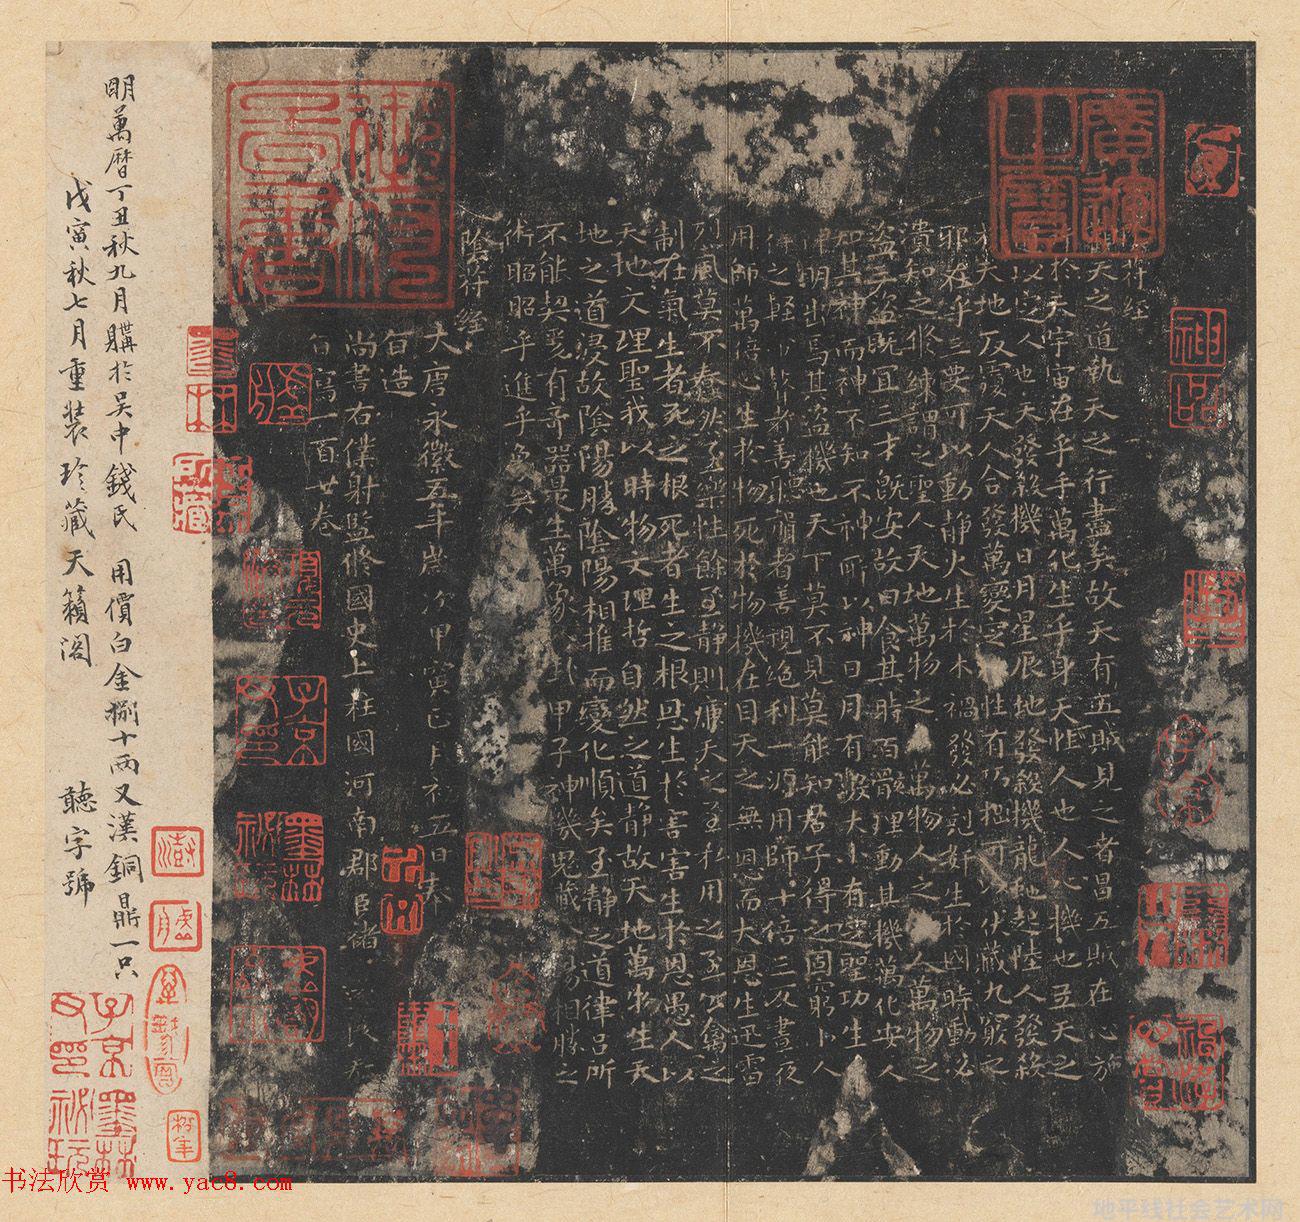 符經
天之道執天之行盡矣故天有五賊見之者昌五賊在心施
於天宇宙在乎手萬化生乎身天性人也人心機也立天之
以定人也天發殺機日月星辰地發殺機龍蛇起陸人發殺
天地反覆天人合發萬變定性有巧拙可以伏藏九竅之
邪在乎三要可以動靜火生於木禍發必剋奸生於國時動必
潰知之修練謂之聖人天地萬物之萬物人之人萬物之
盜三盜既宜三才既安故曰食其時百骸理動其機萬化安人
知其神而神不知不神所以神日月有數大小有定聖功生人
明出焉其盜機也天下莫不見莫能知君子得之固窮小人
得之輕命瞽者善聽聾者善視絕利一源用師十倍三反晝夜
用師萬倍心生於物死於物機在目天之無恩而大恩生迅雷
烈風莫不蠢然至樂性餘至靜則廉天之至私用之至公禽之
制在氣生者死之根死者生之根恩生於害害生於恩愚人以
天地文理聖我以時物文理哲自然之道靜故天地萬物生天
地之道浸故陰陽勝陰陽相推而變化順矣至靜之道律呂所
不能契爰有奇器是生萬象八卦甲子神機鬼藏陰陽相勝之
術昭昭乎進乎象矣
陰符經
大唐永徽五年歲次甲寅正月初五日奉
旨造
尚書右僕射監修國史上柱國河南郡臣褚遂良奉
旨寫一百廿卷
明萬曆丁丑秋九月購於吳中錢氏 用價白金捌十兩又漢銅鼎一只
戊寅秋七月重裝珍藏天籟閣 聽字號
廣運之寶
神品
子京
墨林
項元汴印
子京父印
墨林秘玩
子京父印
墨林秘玩
书法欣赏 www.yac8.com
地平线社会艺术网